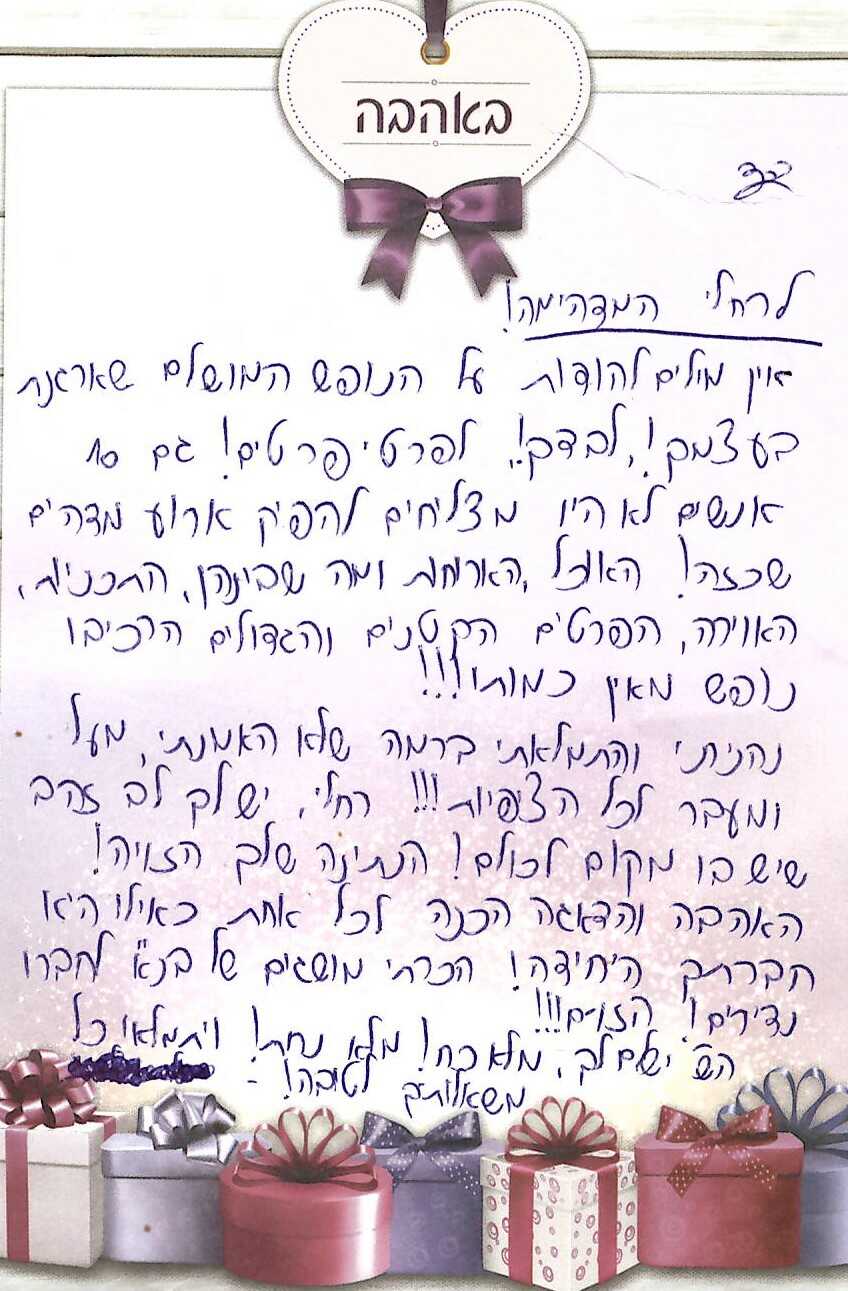 באהבה
בעד
לרחלי המדהימה!
אין מילים להודות על הנופש המושלם שארגנת
בעצמך!, לבדך!, לפרטי פרטים! גם 10
אנשים לא היו מצליחים להפיק ארוע מדהים
שכזה! האוכל, הארוחות ומה שבינהן, התכניות,
האוירה, הפרטים הקטנים והגדולים הרכיבו
נופש מאין כמותו!!!
נהניתי והתמלאתי ברמה שלא האמנתי, מעל
ומעבר לכל הציפיות!!! רחלי, יש לך לב זהב
שיש בו מקום לכולם! הנתינה שלך הזויה!
האהבה והדאגה הכנה לכל אחת כאילו היא
חברתך היחידה! הכרתי מושגים של בנ"א לחברו
נדירים! הזויים!!!
הש' ישלם לך, מלא כח! מלא נחת! ויתמלאו כל
משאלותיך לטובה! -